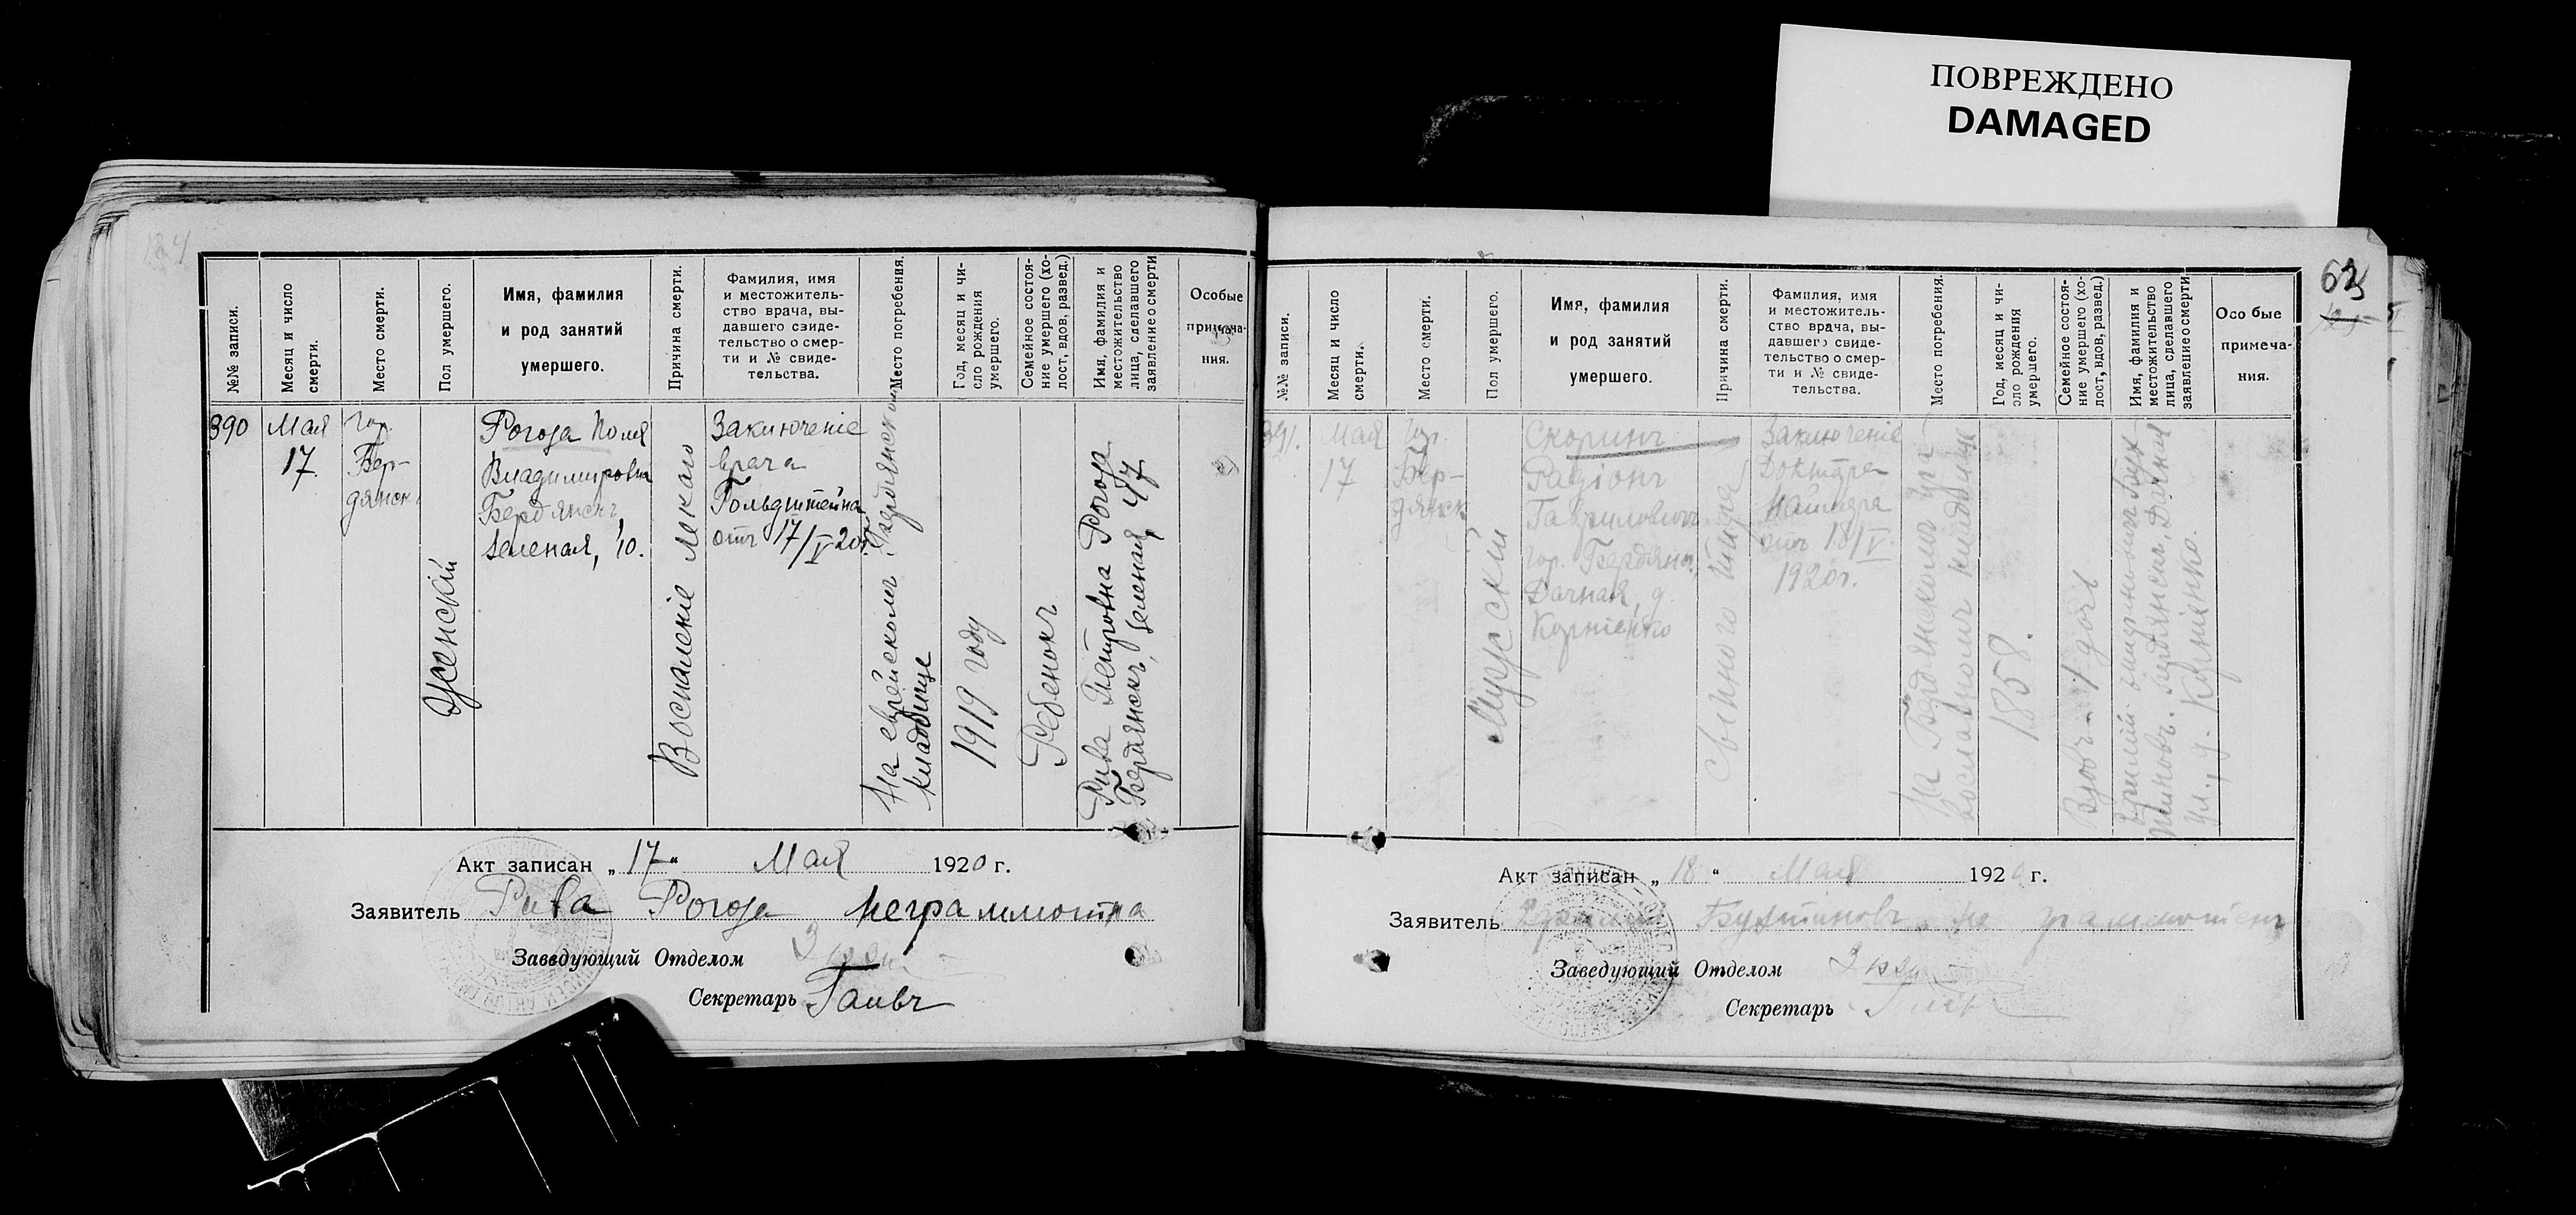 ПОВРЕЖДЕНО
DAMAGED
№№ записи.
Месяц и число
смерти.
Место смерти.
Пол умершего.
Имя, фамилия
и род занятий
умершего.
Причина смерти.
Фамилия, имя
и местожитель-
ство врача, вы-
давшего свиде-
тельство о смер-
ти и № свиде-
тельства.
Место погребения.
Год, месяц и чи-
сло рождения
умершего.
Семейное состоя-
ние умершего (хо-
лост, вдов, развед.)
Имя, фамилия и
местожительство
лица, сделавшего
заявление о смерти
Особые
примеча-
ния.
390
Мая
17.
гор.
Бер-
дянск
Женскій
Рогоза Поля
Владимировна
Бердянскъ,
Зеленая, 10.
Воспаленіе легкаго
Заключеніе
врача
Гольдштейна
отъ 17/V 20г.
На еврейскомъ Бердянском
кладбище
1919 году
Ребенокъ
Рива Петровна Рогоза
Бердянскъ, Зеленая, 47
Акт записан „17“ Мая 1920 г.
Заявитель Рива Рогоза неграмотна
Заведующий Отделом
Секретарь
63
№№ записи.
Месяц и число
смерти.
Место смерти.
Пол умершего.
Имя, фамилия
и род занятий
умершего.
Причина смерти.
Фамилия, имя
и местожитель-
ство врача, вы-
давшего свиде-
тельство о смер-
ти и № свиде-
тельства.
Место погребения.
Год, месяц и чи-
сло рождения
умершего.
Семейное состоя-
ние умершего (хо-
лост, вдов, развед.)
Имя, фамилия и
местожительство
лица, сделавшего
заявление о смерти
Особые
примеча-
ния.
391.
Мая
17
гор.
Бер-
дянск
Мужскій
Скоринъ
Радіонъ
Гавриловичъ
гор. Бердянск,
Дачная, д.
Корніенко
Сыпного тифа
Заключеніе
Доктора
отъ 18/V
1920г.
На Бердянскомъ
кладбище
1858.
Вдовъ - 1 дочь
Бердянскъ, Дачная
ул., д. Корніенко.
Акт записан „18“ Мая 1920 г.
Заявитель Бухтіяновъ не грамотенъ
Заведующий Отделом
Секретарь